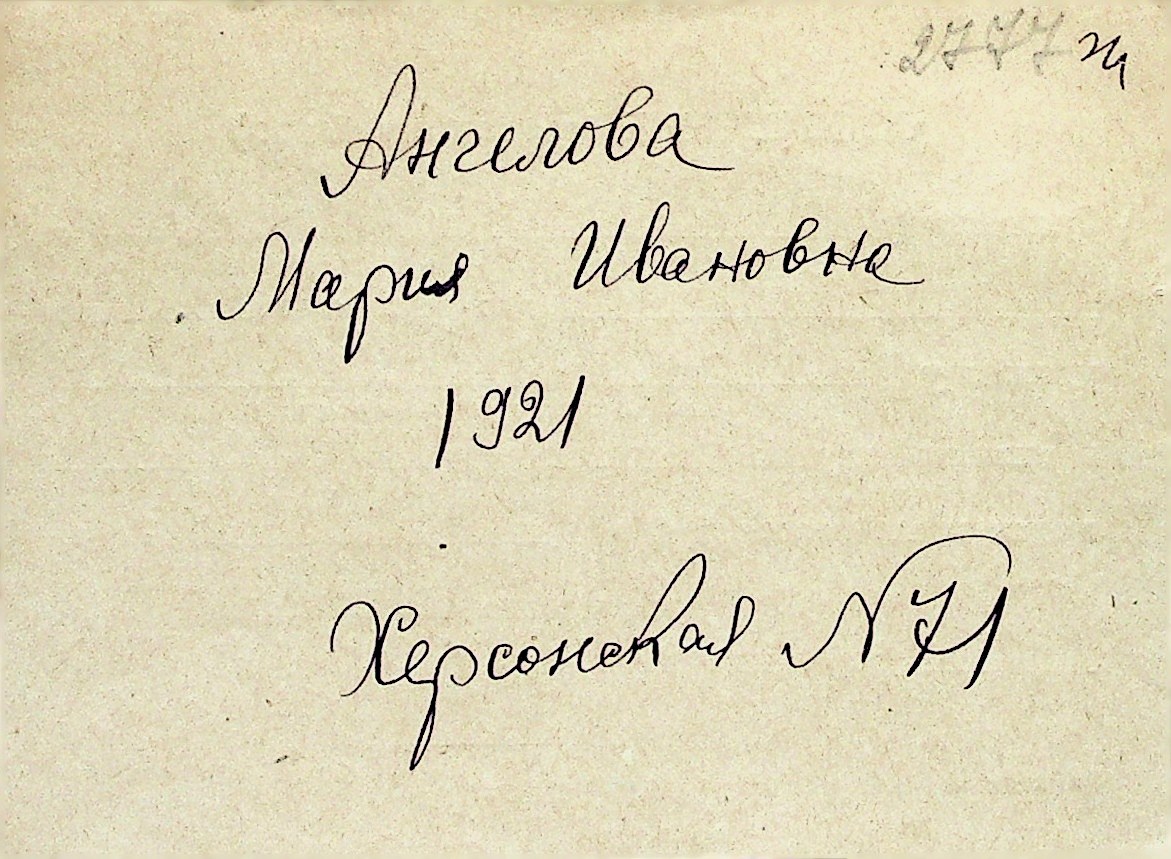 2777
Ангелова
Мария Ивановна
1921
Херсонская N 71